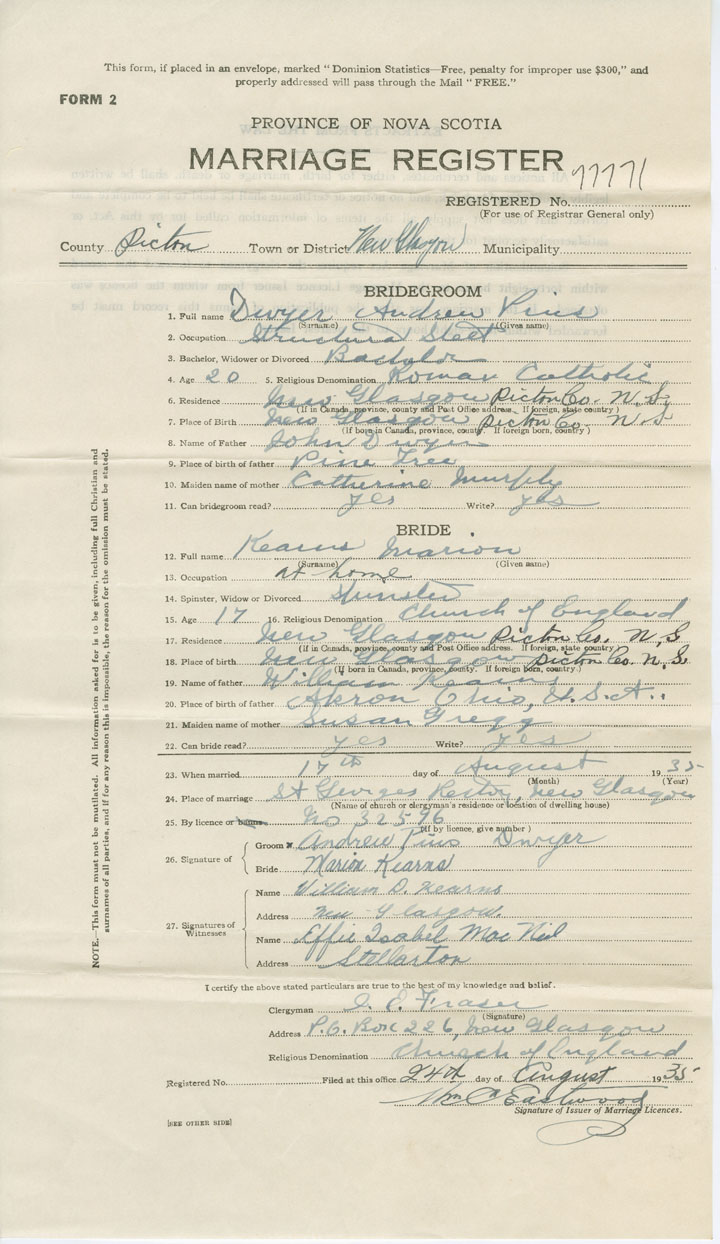 This form, if placed in an envelope, marked " Dominion Statistics—Free, penalty for improper use $300," and
properly addressed will pass through the Mail " FREE."
FORM 2
PROVINCE OF NOVA SCOTIA
MARRIAGE REGISTER
REGISTERED No.
(For use of Registrar General only)
County Pictou Town or District New Glasgow Municipality
BRIDEGROOM
1. Full name Dwyer Andrew Pius
(Surname) (Given name)
2. Occupation Structural Steel
3. Bachelor, Widower or Divorced Bachelor
4. Age 20 5. Religious Denomination Roman Catholic
6. Residence New Glasgow Pictou Co. N.S.
(If in Canada, province, county and Post Office address. If foreign, state country )
7. Place of Birth New Glasgow Pictou Co. N.S
(If born in Canada, province, county. If foreign born, country )
8. Name of Father John Dwyer
9. Place of birth of father Pine Tree
10. Maiden name of mother Catherine Murphy
11. Can bridegroom read? yes Write? yes
BRIDE
12. Full name Kearns Marion
(Surname) (Given name)
13. Occupation at home
14. Spinster, Widow or Divorced Spinster
15. Age 17 16. Religious Denomination Church of England
17. Residence New Glasgow Pictou Co. N.S
(If in Canada, province, county and Post Office address. If foreign, state country
18. Place of birth New Glasgow Pictou Co. N.S.
(If born in Canada, province, county. If foreign born, country )
19. Name of father William Kearns
20. Place of birth of father Akron Ohio, U.S.A.
21. Maiden name of mother Susan Gregg
22. Can bride read? yes Write? yes
23. When married 17th day of August 1935
(Month) (Year)
24. Place of marriage St Georges Rectory, New Glasgow
(Name of church or clergyman's residence or location of dwelling house)
25. By licence or banns No 32596
(If by licence, give number )
26. Signature of
Groom Andrew Pius Dwyer
Bride Marion Kearns
27. Signatures of Witnesses
Name William D. Kearns
Address New Glasgow.
Name Effie Isabel Mac Neil
Address Stellarton
I certify the above stated particulars are true to the best of my knowledge and belief.
Clergyman Fraser
(Signature)
Address P.O. Box 226, New Glasgow
Religious Denomination Church of England
Registered No. Filed at this office 24th day of August 1935
Wm C Eastwood
Signature of Issuer of Marriage Licences.
[SEE OTHER SIDE]
NOTE.—This form must not be mutilated. All information asked for is to be given, including full Christian and
surnames of all parties, and if for any reason this is impossible, the reason for the omission must be stated.